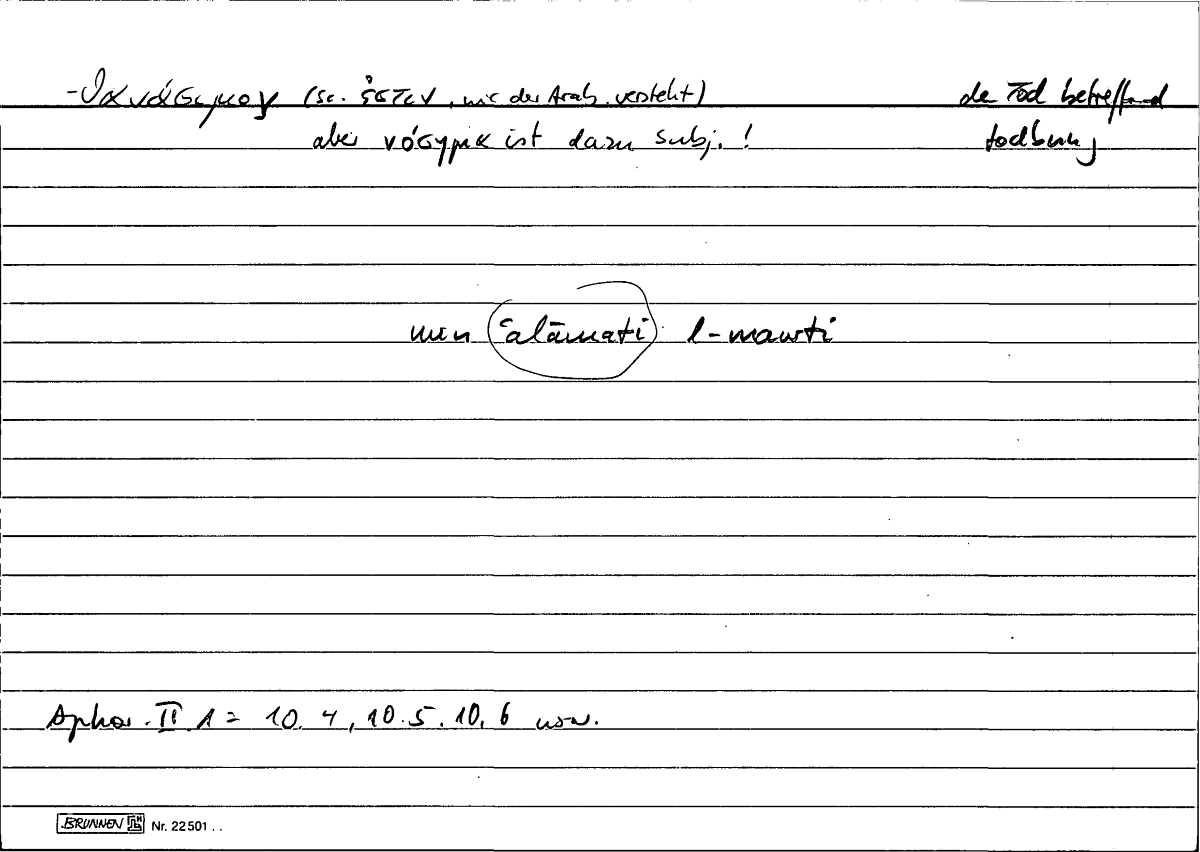 -θανάσιμον (sc. ἐστιν, wie der Arab. versteht) den Tod betreffend
aber νόσημα ist dazu Subj.! todbring
min ʿalāmati l-mawti
Aphor. II 1 = 10. 4, 10. 5. 10, 6 usw.
BRUNNEN Nr. 22501 ..